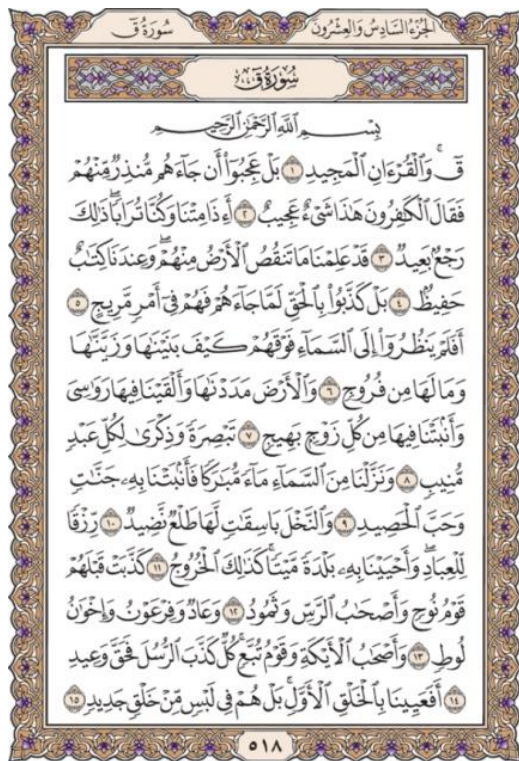 الجُزءُ السَّادِسُ وَالعِشْرُونَ سُورَةُ قٓ
سُورَةُ قٓ
بِسْمِ ٱللَّهِ ٱلرَّحْمَٰنِ ٱلرَّحِيمِ
قٓۚ وَٱلْقُرْءَانِ ٱلْمَجِيدِ ١ بَلْ عَجِبُوٓا۟ أَن جَآءَهُم مُّنذِرٌ مِّنْهُمْ
فَقَالَ ٱلْكَٰفِرُونَ هَٰذَا شَىْءٌ عَجِيبٌ ٢ أَءِذَا مِتْنَا وَكُنَّا تُرَابًاۖ ذَٰلِكَ
رَجْعٌۢ بَعِيدٌ ٣ قَدْ عَلِمْنَا مَا تَنقُصُ ٱلْأَرْضُ مِنْهُمْۖ وَعِندَنَا كِتَٰبٌ
حَفِيظٌۢ ٤ بَلْ كَذَّبُوا۟ بِٱلْحَقِّ لَمَّا جَآءَهُمْ فَهُمْ فِىٓ أَمْرٍ مَّرِيجٍ ٥
أَفَلَمْ يَنظُرُوٓا۟ إِلَى ٱلسَّمَآءِ فَوْقَهُمْ كَيْفَ بَنَيْنَٰهَا وَزَيَّنَّٰهَا
وَمَا لَهَا مِن فُرُوجٍ ٦ وَٱلْأَرْضَ مَدَدْنَٰهَا وَأَلْقَيْنَا فِيهَا رَوَٰسِىَ
وَأَنۢبَتْنَا فِيهَا مِن كُلِّ زَوْجٍۭ بَهِيجٍ ٧ تَبْصِرَةً وَذِكْرَىٰ لِكُلِّ عَبْدٍ
مُّنِيبٍ ٨ وَنَزَّلْنَا مِنَ ٱلسَّمَآءِ مَآءً مُّبَٰرَكًا فَأَنۢبَتْنَا بِهِۦ جَنَّٰتٍ
وَحَبَّ ٱلْحَصِيدِ ٩ وَٱلنَّخْلَ بَاسِقَٰتٍ لَّهَا طَلْعٌ نَّضِيدٌ ١٠ رِّزْقًا
لِّلْعِبَادِۖ وَأَحْيَيْنَا بِهِۦ بَلْدَةً مَّيْتًاۚ كَذَٰلِكَ ٱلْخُرُوجُ ١١ كَذَّبَتْ قَبْلَهُمْ
قَوْمُ نُوحٍ وَأَصْحَٰبُ ٱلرَّسِّ وَثَمُودُ ١٢ وَعَادٌ وَفِرْعَوْنُ وَإِخْوَٰنُ
لُوطٍ ١٣ وَأَصْحَٰبُ ٱلْأَيْكَةِ وَقَوْمُ تُبَّعٍۚ كُلٌّ كَذَّبَ ٱلرُّسُلَ فَحَقَّ وَعِيدِ
١٤ أَفَعَيِينَا بِٱلْخَلْقِ ٱلْأَوَّلِۚ بَلْ هُمْ فِى لَبْسٍ مِّنْ خَلْقٍ جَدِيدٍ ١٥
٥١٨